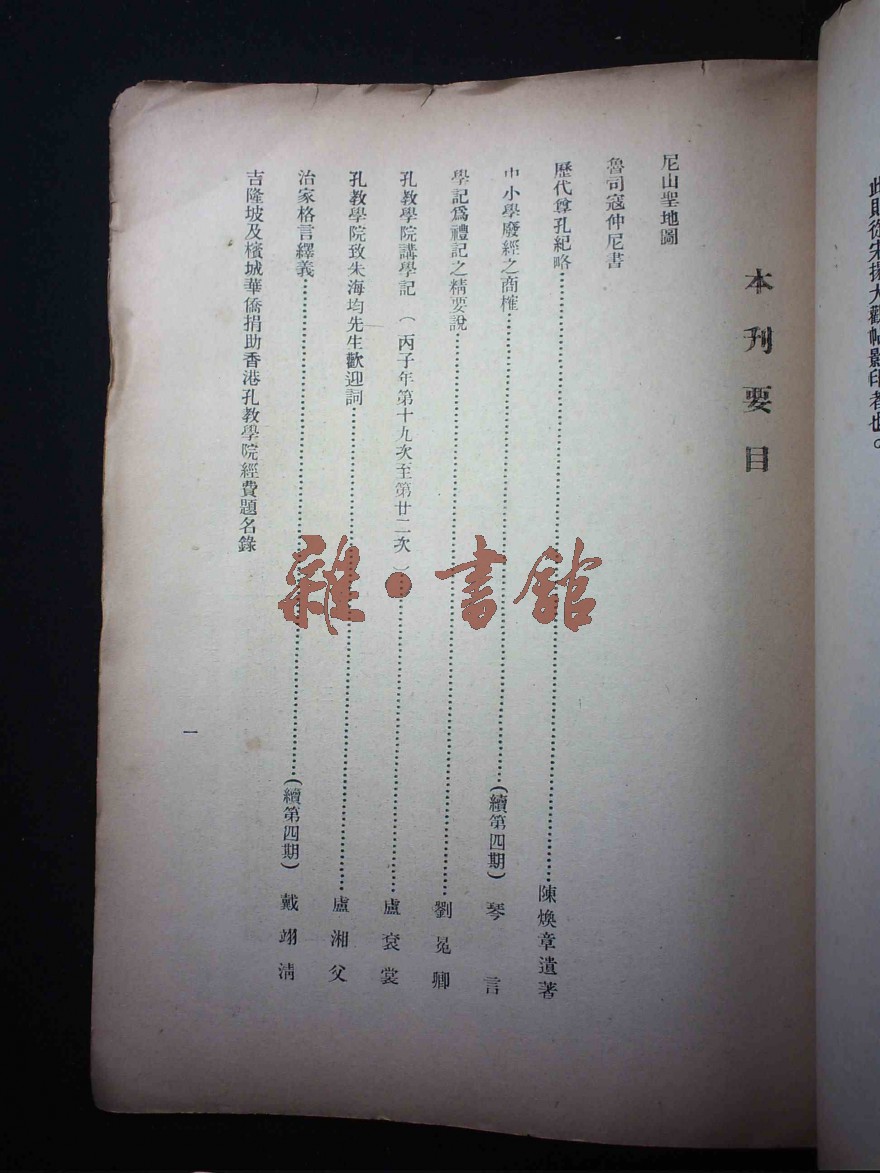 此則從宋搨大觀帖影印者也。
本刊要目
尼山聖地圖
魯司寇仲尼書
歷代尊孔紀略……陳煥章遺著
中小學廢經之商榷……(續第四期)琴言
學記爲禮記之精要說……劉冕卿
孔教學院講學記(丙子年第十九次至第廿二次)……盧袞裳
孔教學院致朱海均先生歡迎詞……盧湘父
治家格言繹義……(續第四期)戴翊清
吉隆坡及檳城華僑捐助香港孔教學院經費題名錄
一
雜·書館